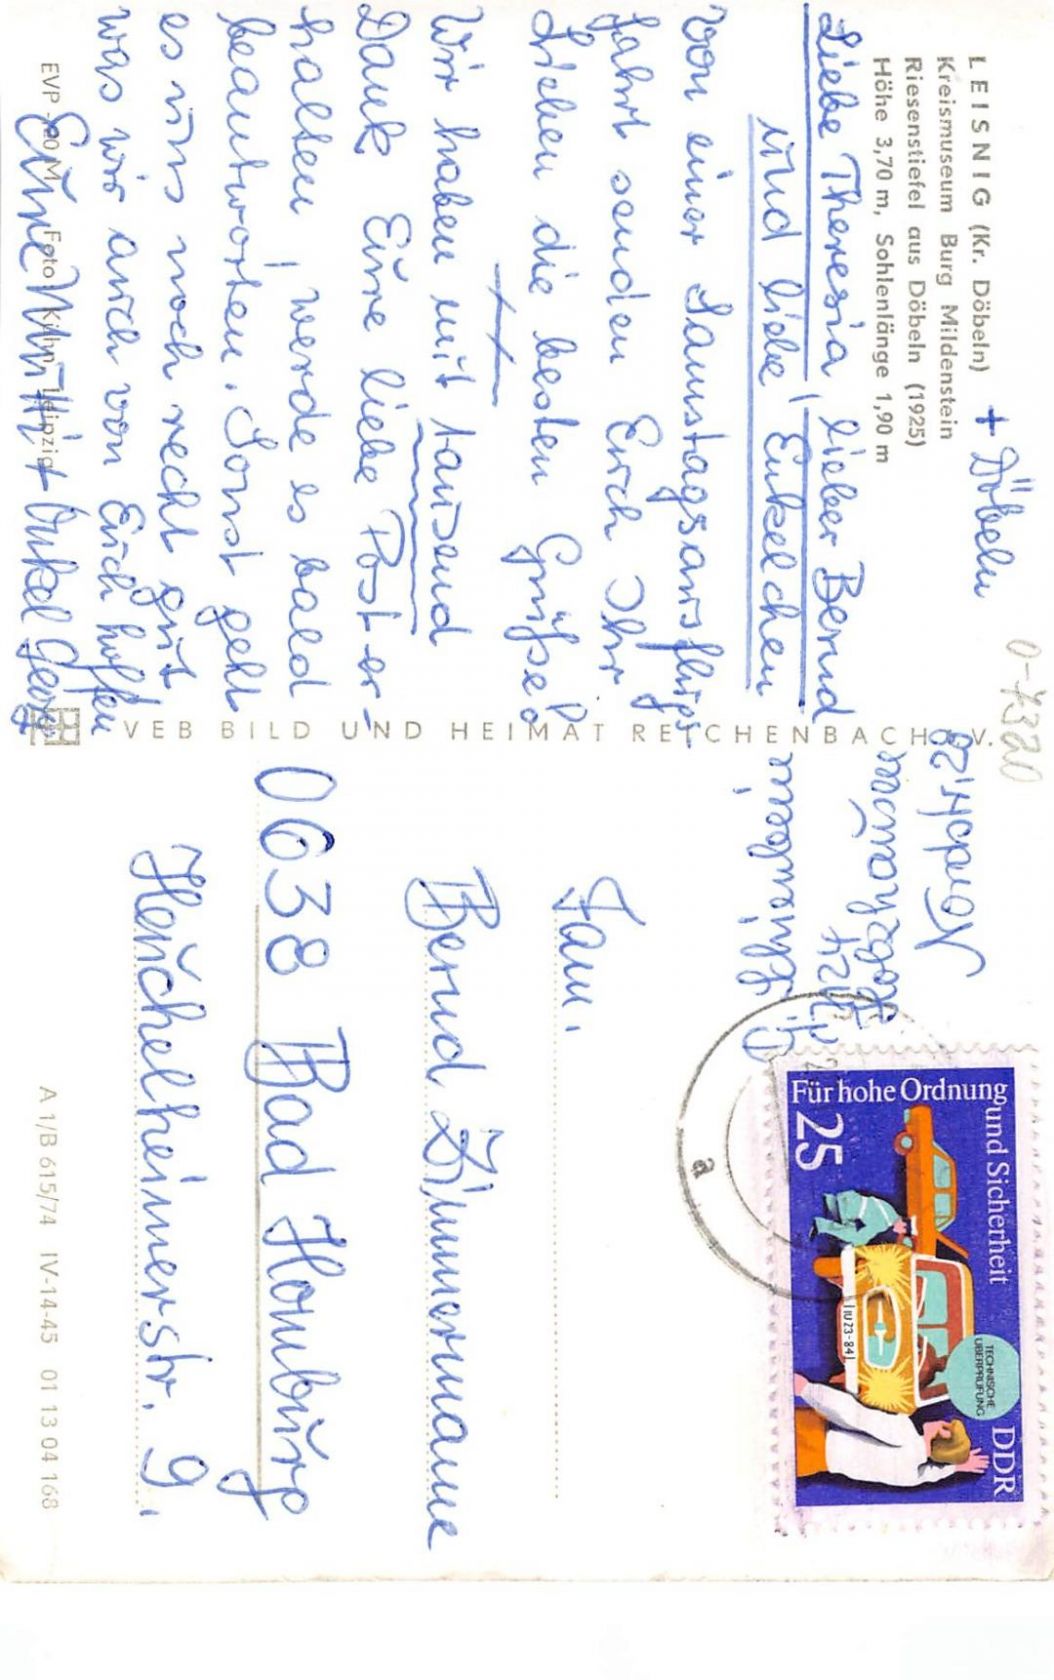 LEISNIG (Kr. Döbeln)
+ Döbeln
Kreismuseum Burg Mildenstein
Riesenstiefel aus Döbeln (1925)
Höhe 3,70 m, Sohlenlänge 1,90 m
Liebe Theresia, lieber Bernd
und liebe Enkelchen
Von einer Samstagsausflugs-
fahrt senden Euch Ihr
Lieben die besten Grüße!
Wir haben mit tausend
Dank Eure liebe Post er-
halten, werde es bald
beantworten. Sonst geht
es uns noch recht gut
was wir auch von Euch hoffen
Eure Mutti + Onkel Georg
EVP -,20 M Foto Kühn, Leipzig
VEB BILD UND HEIMAT REICHENBACH i. V.
0-7320
25
Für hohe Ordnung
und Sicherheit
DDR
TECHNISCHE
ÜBERPRÜFUNG
IU 23-84
a
Fam.
Bernd Zimmermann
0638 Bad Homburg
Heuchelheimerstr. 9.
A 1/B 615/74 IV-14-45 01 13 04 168